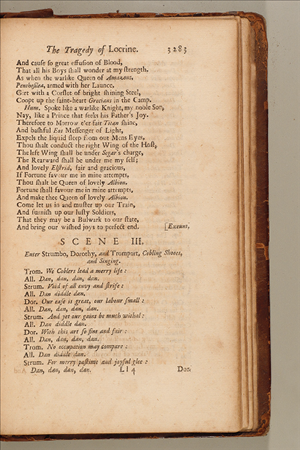 The Tragedy of Locrine. 3283
And cause so great effusion of Blood,
That all his Boys shall wonder at my strength.
As when the warlike Queen of Amazons,
Penthesilea, armed with her Launce,
Girt with a Corslet of bright shining Steel,
Coops up the faint-heart Grecians in the Camp.
Hum. Spoke like a warlike Knight, my noble Son,
Nay, like a Prince that seeks his Father's Joy.
Therefore to Morrow e'er fair Titan shine,
And bashful Eos Messenger of Light,
Expels the liquid sleep from out Mens Eyes,
Thou shalt conduct the right Wing of the Host,
The left Wing shall be under Segar's charge,
The Rearward shall be under me my self;
And lovely Elstrid, fair and gracious,
If Fortune favour me in mine attempts,
Thou shalt be Queen of lovely Albion.
Fortune shall favour me in mine attempts,
And make thee Queen of lovely Albion.
Come let us in and muster up our Train,
And furnish up our lusty Soldiers,
That they may be a Bulwark to our state,
And bring our wished joys to perfect end. [Exeunt.
SCENE III.
Enter Strumbo, Dorothy, and Trumpart, Cobling Shooes,
and Singing.
Trom. We Coblers lead a merry life:
All. Dan, dan, dan, dan.
Strum. Void of all envy and strife:
All. Dan diddle dan.
Dor. Our ease is great, our labour small:
All. Dan, dan, dan, dan.
Strum. And yet our gains be much withal:
All. Dan diddle dan.
Dor. With this art so fine and fair:
All. Dan, dan, dan, dan.
Trom. No occupation may compare:
All. Dan diddle dan.
Strum. For merry pastime and joyful glee:
Dan, dan, dan, dan. Ll4 Dor.